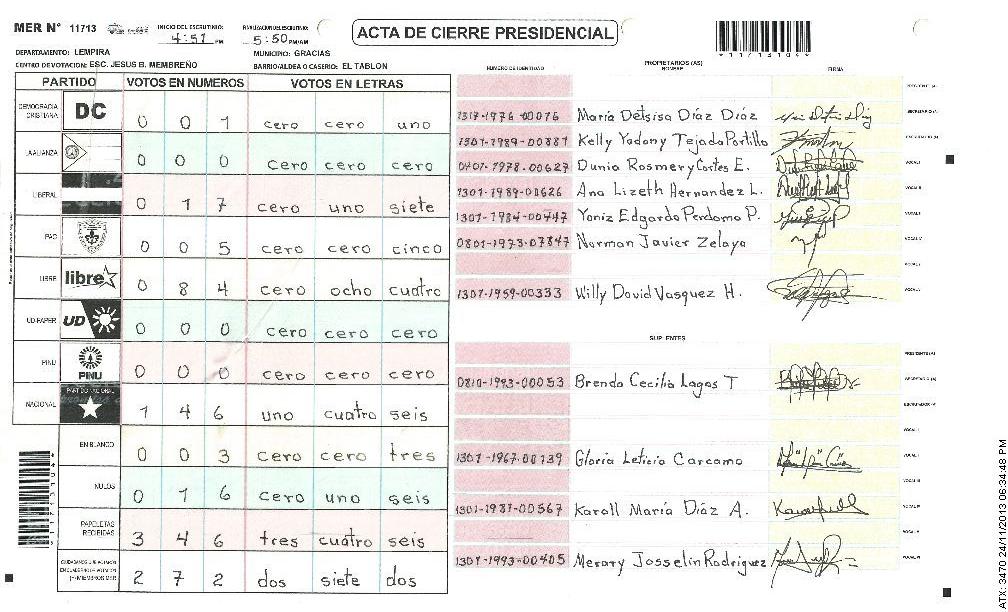 MER N° 11713
INICIO DEL ESCRUTINIO: 4:51 PM
FINALIZACION DEL ESCRUTINIO: 5:50 PM/AM
ACTA DE CIERRE PRESIDENCIAL
DEPARTAMENTO: LEMPIRA
MUNICIPIO: GRACIAS
CENTRO DE VOTACION: ESC. JESUS B. MEMBREÑO
BARRIO/ALDEA O CASERIO: EL TABLON
PARTIDO VOTOS EN NUMEROS VOTOS EN LETRAS
DEMOCRACIA CRISTIANA DC 0 0 1 cero cero uno
LA ALIANZA 0 0 0 cero cero cero
LIBERAL 0 1 7 cero uno siete
PAC 0 0 5 cero cero cinco
LIBRE libre 0 8 4 cero ocho cuatro
UD-FAPER UD 0 0 0 cero cero cero
PINU PINU 0 0 0 cero cero cero
NACIONAL PARTIDO NACIONAL 1 4 6 uno cuatro seis
EN BLANCO 0 0 3 cero cero tres
NULOS 0 1 6 cero uno seis
PAPELETAS RECIBIDAS 3 4 6 tres cuatro seis
2 7 2 dos siete dos
NUMERO DE IDENTIDAD
PROPIETARIOS (AS)
NOMBRE
FIRMA
PRESIDENTE (A)
1317-1976-00076 María Delsisa Díaz Díaz SECRETARIO (A)
1301-1989-00887 Kelly Yadany Tejada Portillo ESCRUTADOR (A)
0401-1978-00627 Dunia Rosmery Cortes E. VOCAL I
1301-1989-00626 Ana Lizeth Hernandez L. VOCAL II
1301-1984-00447 Yaniz Edgardo Perdomo P.
0801-1973-07847 Norman Javier Zelaya VOCAL IV
1301-1959-00333 Willy David Vasquez H.
SUPLENTES
PRESIDENTE (A)
0210-1993-00053 Brenda Cecilia Lagos T SECRETARIO (A)
ESCRUTADOR (A)
VOCAL I
1301-1967-00139 Gloria Leticia Carcamo
VOCAL III
1301-1987-00567 Karoll María Díaz A. VOCAL IV
1301-1993-00405 Merary Josselin Rodriguez
ATX: 3470 24/11/2013 06:34:48 PM